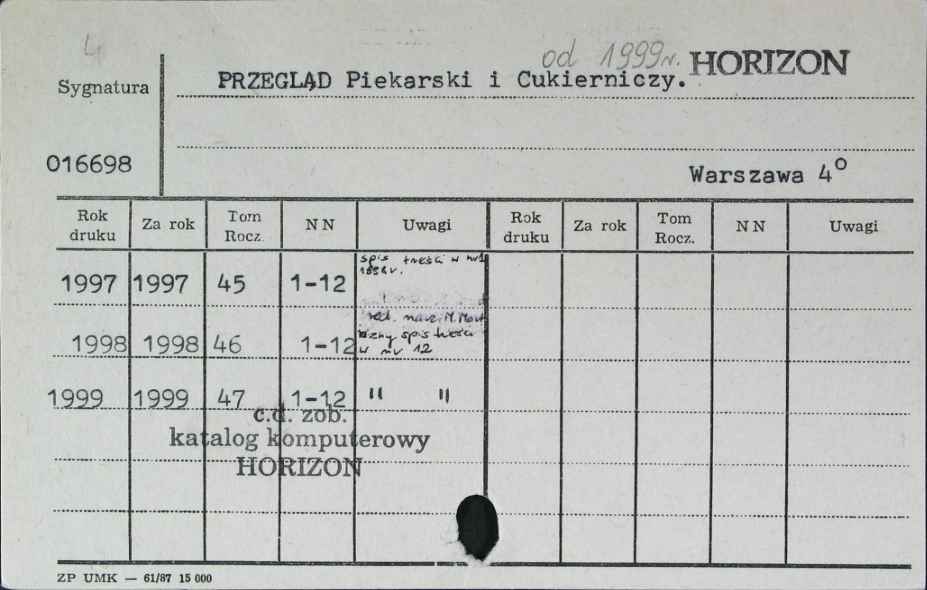 4
od 1999r. HORIZON
Sygnatura
PRZEGLĄD Piekarski i Cukierniczy.
016698
Warszawa 4°
Rok druku Za rok Tom Rocz. NN Uwagi Rok druku Za rok Tom Rocz. NN Uwagi
1997 1997 45 1-12 spis treści w nr 1
1998 1998 46 1-12 spis treści w nr 12
1999 1999 47 1-12 " "
c.d. zob.
katalog komputerowy
HORIZON
ZP UMK — 61/87 15 000